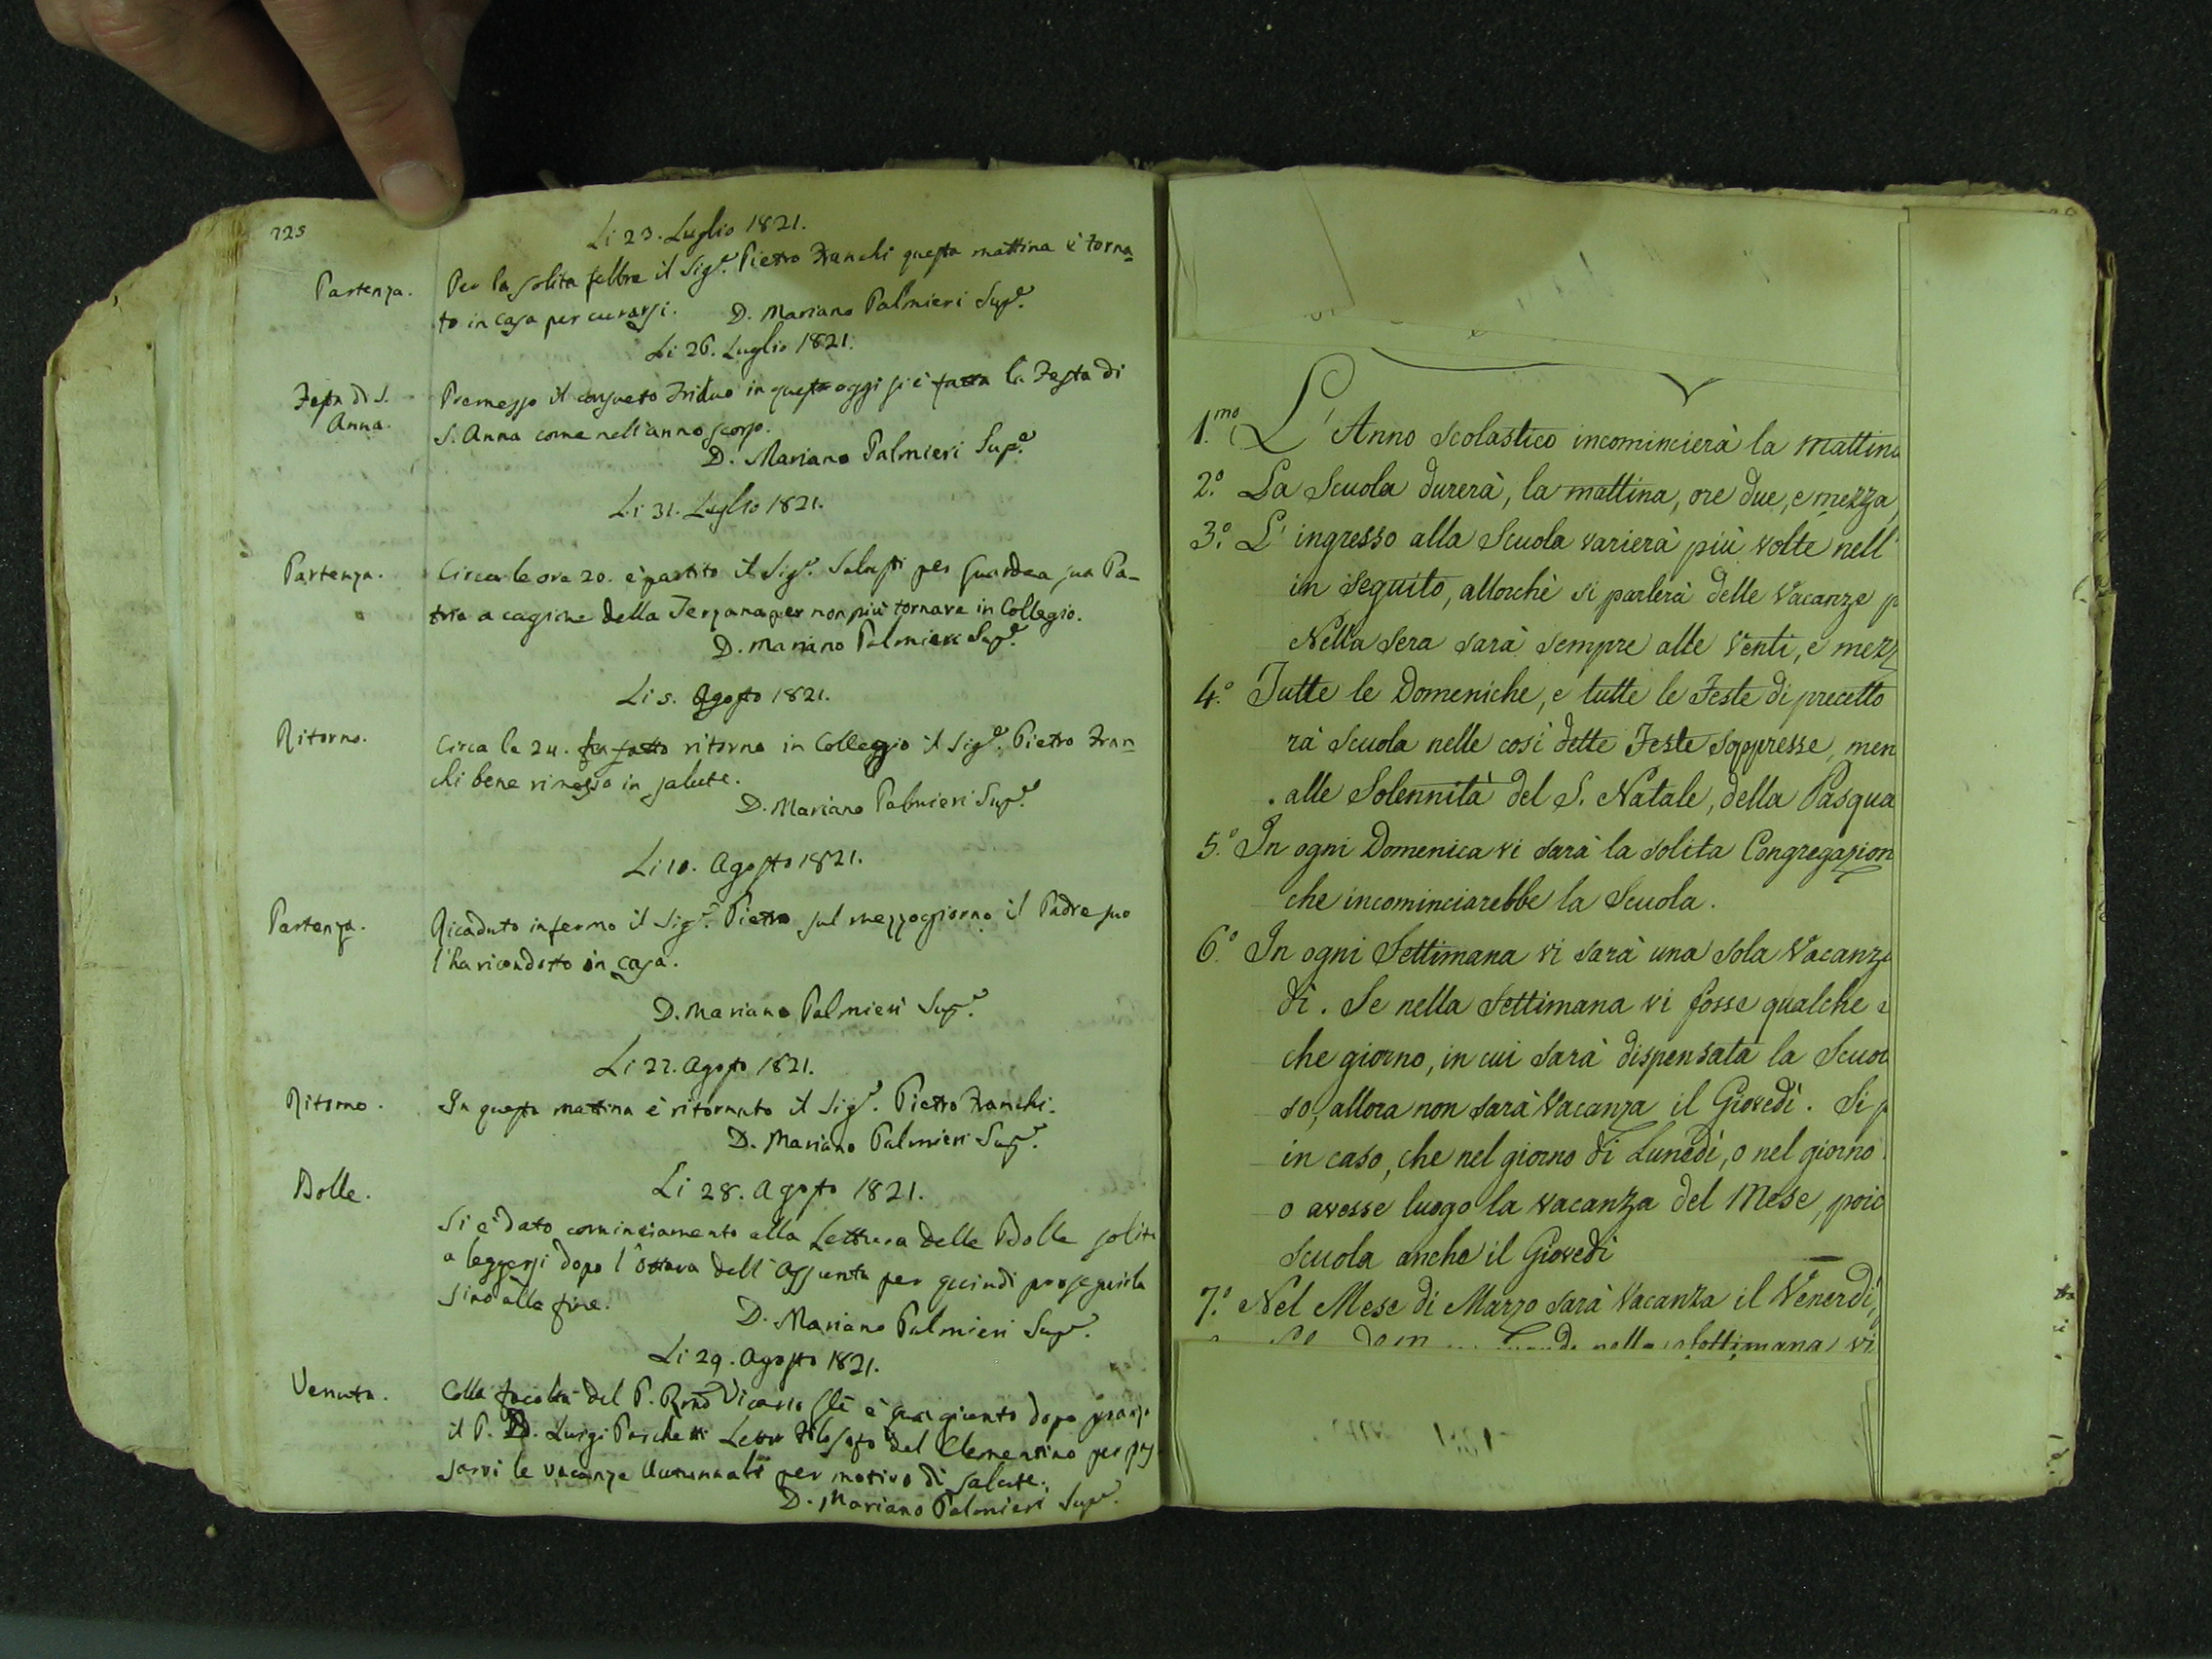 725
Li 23. Luglio 1821.
Partenza.
Per la solita febbre il Sig.r Pietro Franchi questa mattina è torna
to in casa per curarsi. D. Mariano Palmieri Sup.e
Li 26. Luglio 1821.
Festa di S.
Anna.
Premesso il consueto Triduo in questo oggi si è fatta la Festa di
S. Anna come nell'anno scorso.
D. Mariano Palmieri Sup.e
Li 31. Luglio 1821.
Partenza.
Circa le ore 20. è partito il Sig.r Salusti per Guardea sua Pa-
tria a cagione della Terzana per non più tornare in Collegio.
D. Mariano Palmieri Sup.e
Li 5. Agosto 1821.
Ritorno.
Circa le 24. fatto ritorno in Colleggio il Sig.r Pietro Fran
chi bene rimesso in salute.
D. Mariano Palmieri Sup.e
Li 10. Agosto 1821.
Partenza.
Ricaduto infermo il Sig.r Pietro sul mezzogiorno il Padre suo
l'ha ricondotto in casa.
D. Mariano Palmieri Sup.e
Li 22. Agosto 1821.
Ritorno.
In questa mattina è ritornato il Sig.r Pietro Franchi.
D. Mariano Palmieri Sup.e
Bolle.
Li 28. Agosto 1821.
Si è dato cominciamento alla Lettura delle Bolle solite
a leggersi dopo l'Ottava dell'Assunta per quindi proseguirla
sino alla fine.
D. Mariano Palmieri Sup.e
Li 29. Agosto 1821.
Venuta.
Colla facoltà del P. Rmo Vicario Gle è qui giunto dopo pranzo
il P. D. Luigi Parchetti Filosofo del Clementino per pas
sarvi le vacanze Autunnali per motivo di salute.
D. Mariano Palmieri Sup.e
1.mo L'Anno scolastico incomincierà la mattina
2.o La Scuola durerà, la mattina, ore due, e mezza,
3.o L'ingresso alla Scuola varierà più volte nell'
in seguito, allorchè si parlerà delle Vacanze p
Nella sera sarà sempre alle Venti, e mezz
4.o Tutte le Domeniche, e tutte le Feste di precetto
rà Scuola nelle così dette Feste soppresse, men
alle Solennità del S. Natale, della Pasqua
5.o In ogni Domenica vi sarà la solita Congregazion
che incominciarebbe la Scuola.
6.o In ogni Settimana vi sarà una sola Vacanza
dì. Se nella Settimana vi fosse qualche
che giorno, in cui sarà dispensata la Scuo
so, allora non sarà Vacanza il Giovedì. Si p
in caso, che nel giorno di Lunedì, o nel giorno
o avesse luogo la vacanza del Mese, poic
scuola anche il Giovedì
7.o Nel Mese di Marzo sarà Vacanza il Venerdì,
nella settimana vi